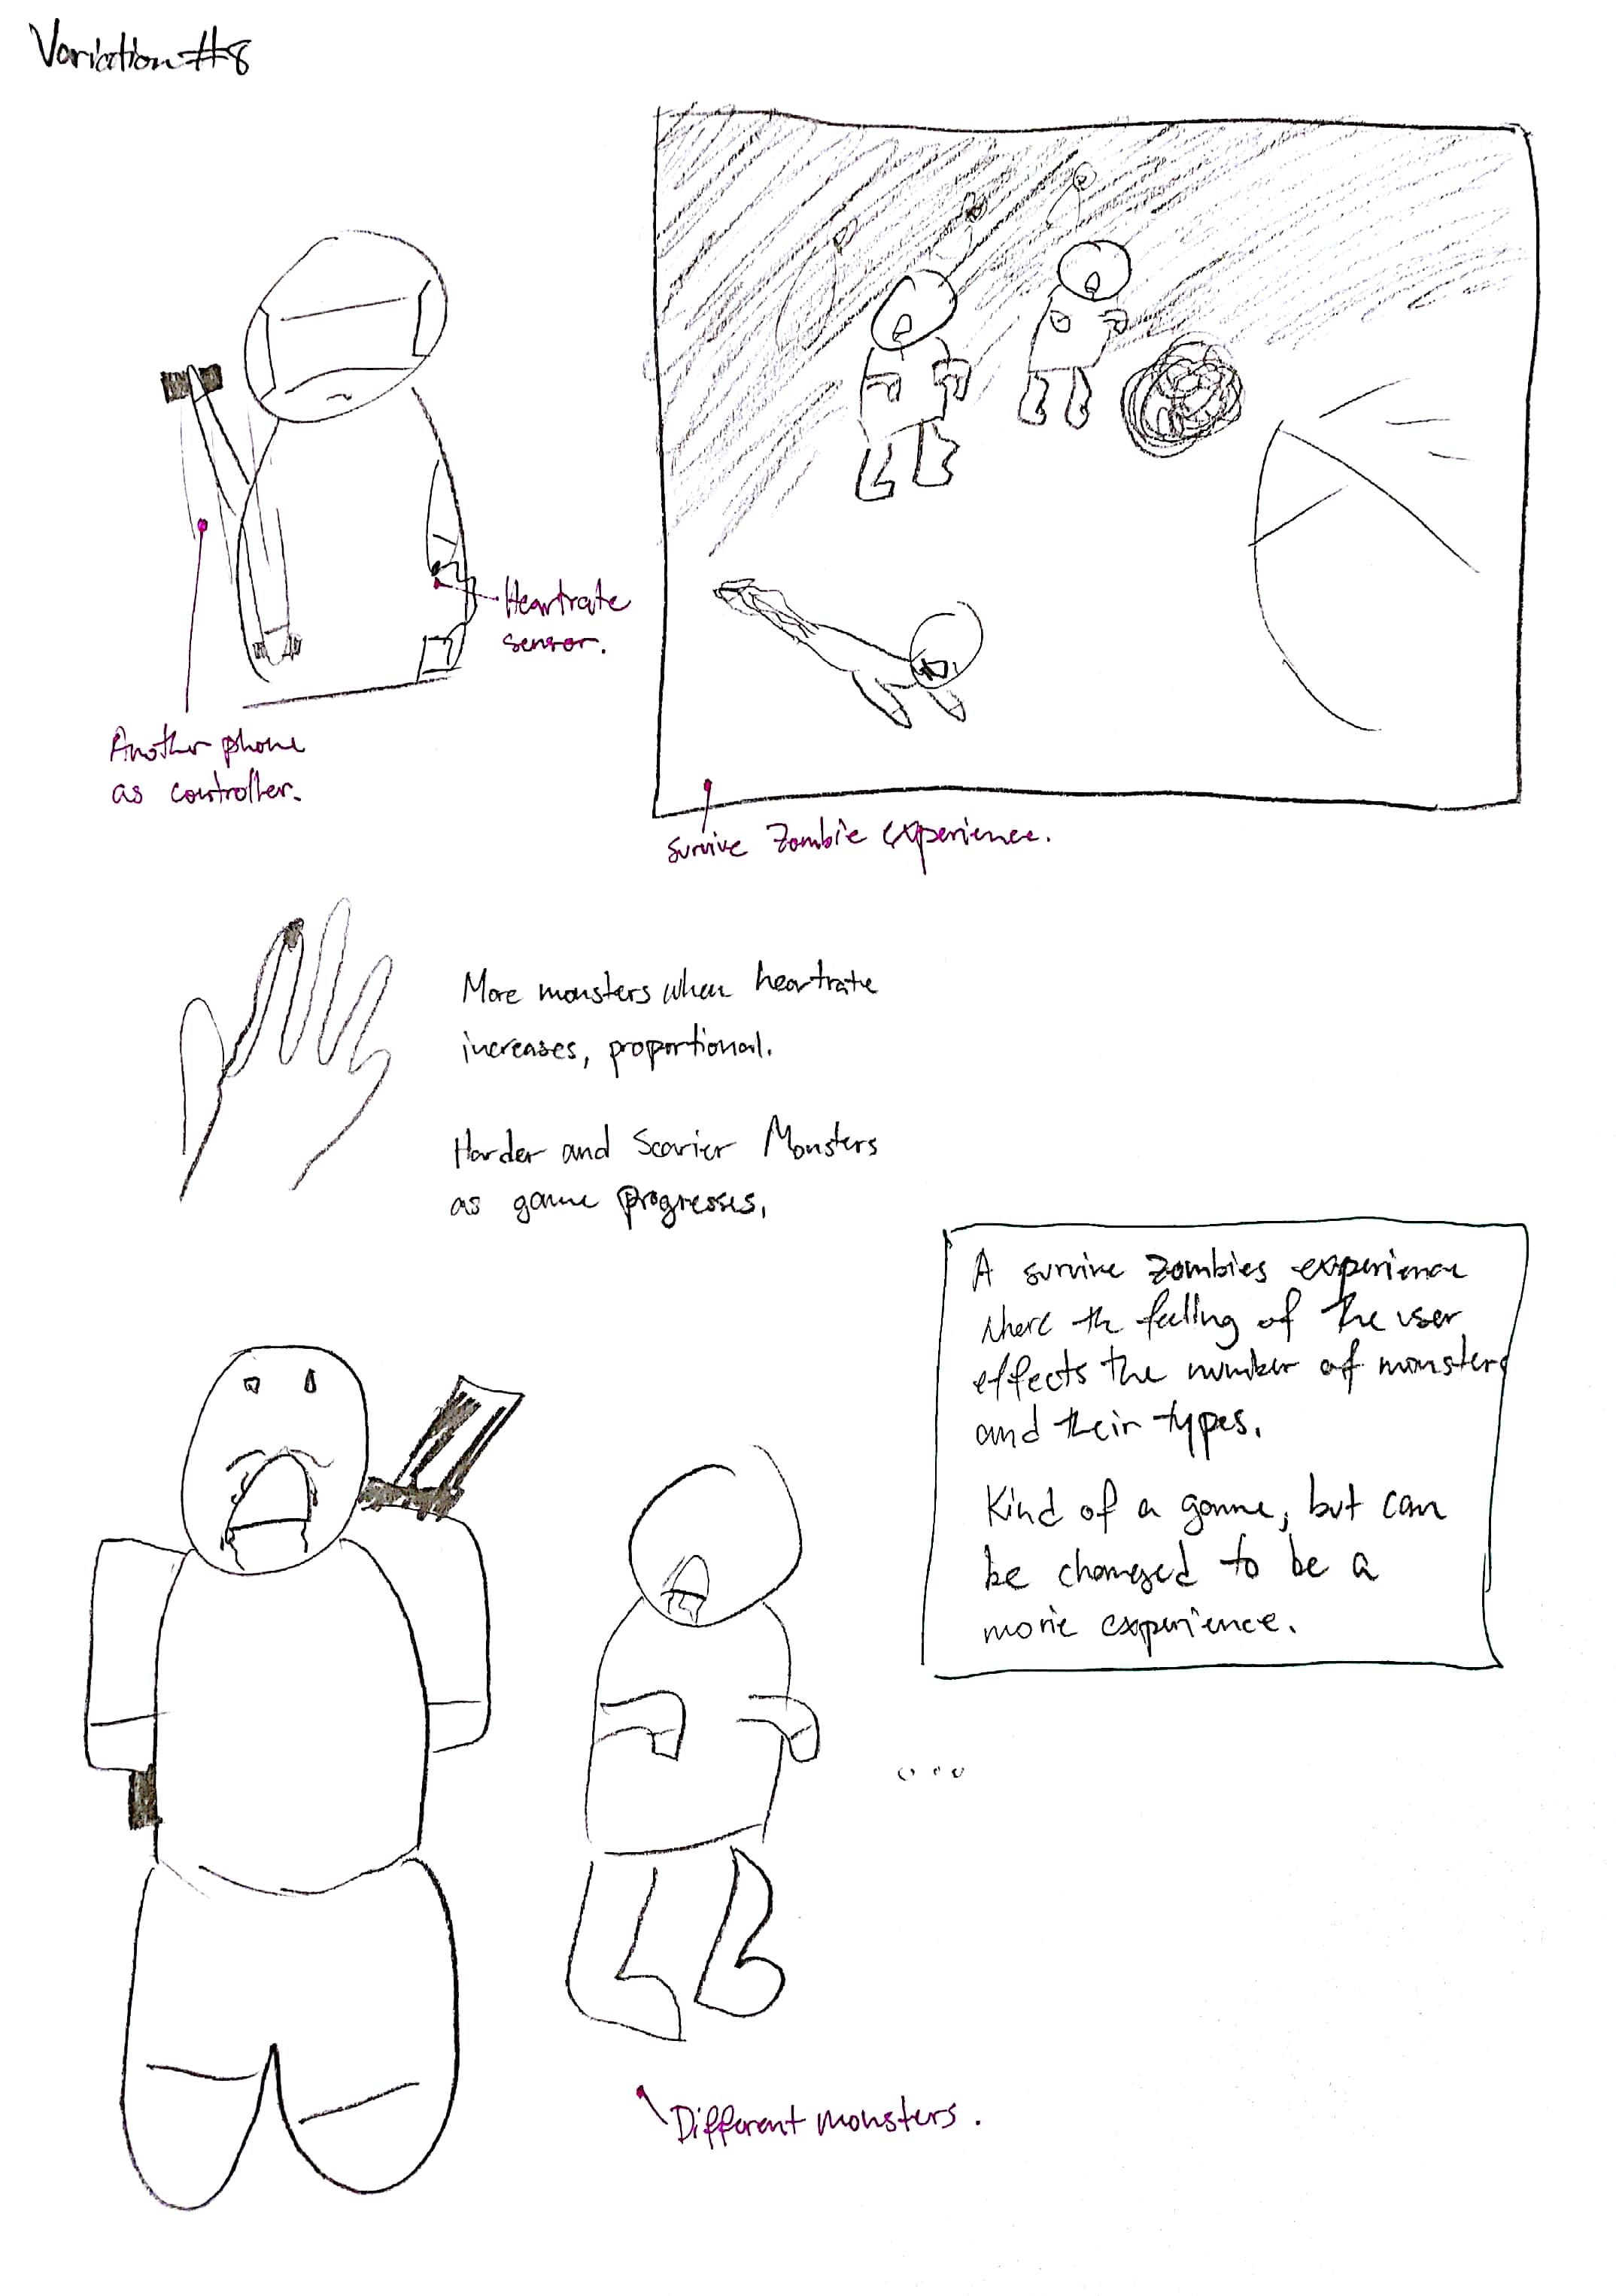 Variation #8
Heartrate
sensor.
Another phone
as controller.
survive Zombie experience.
More monsters when heartrate
increases, proportional.
Harder and Scarier Monsters
as game progresses.
A survive zombies experience
where the feeling of the user
effects the number of monsters
and their types.
Kind of a game, but can
be changed to be a
movie experience.
Different monsters.